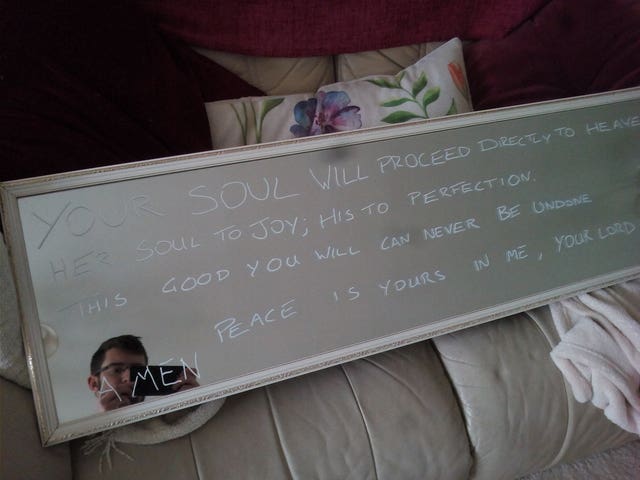 YOUR SOUL WILL PROCEED DIRECTLY TO HEAVE
HER SOUL TO JOY; HIS TO PERFECTION.
THIS GOOD YOU WILL CAN NEVER BE UNDONE
PEACE IS YOURS IN ME, YOUR LORD
AMEN